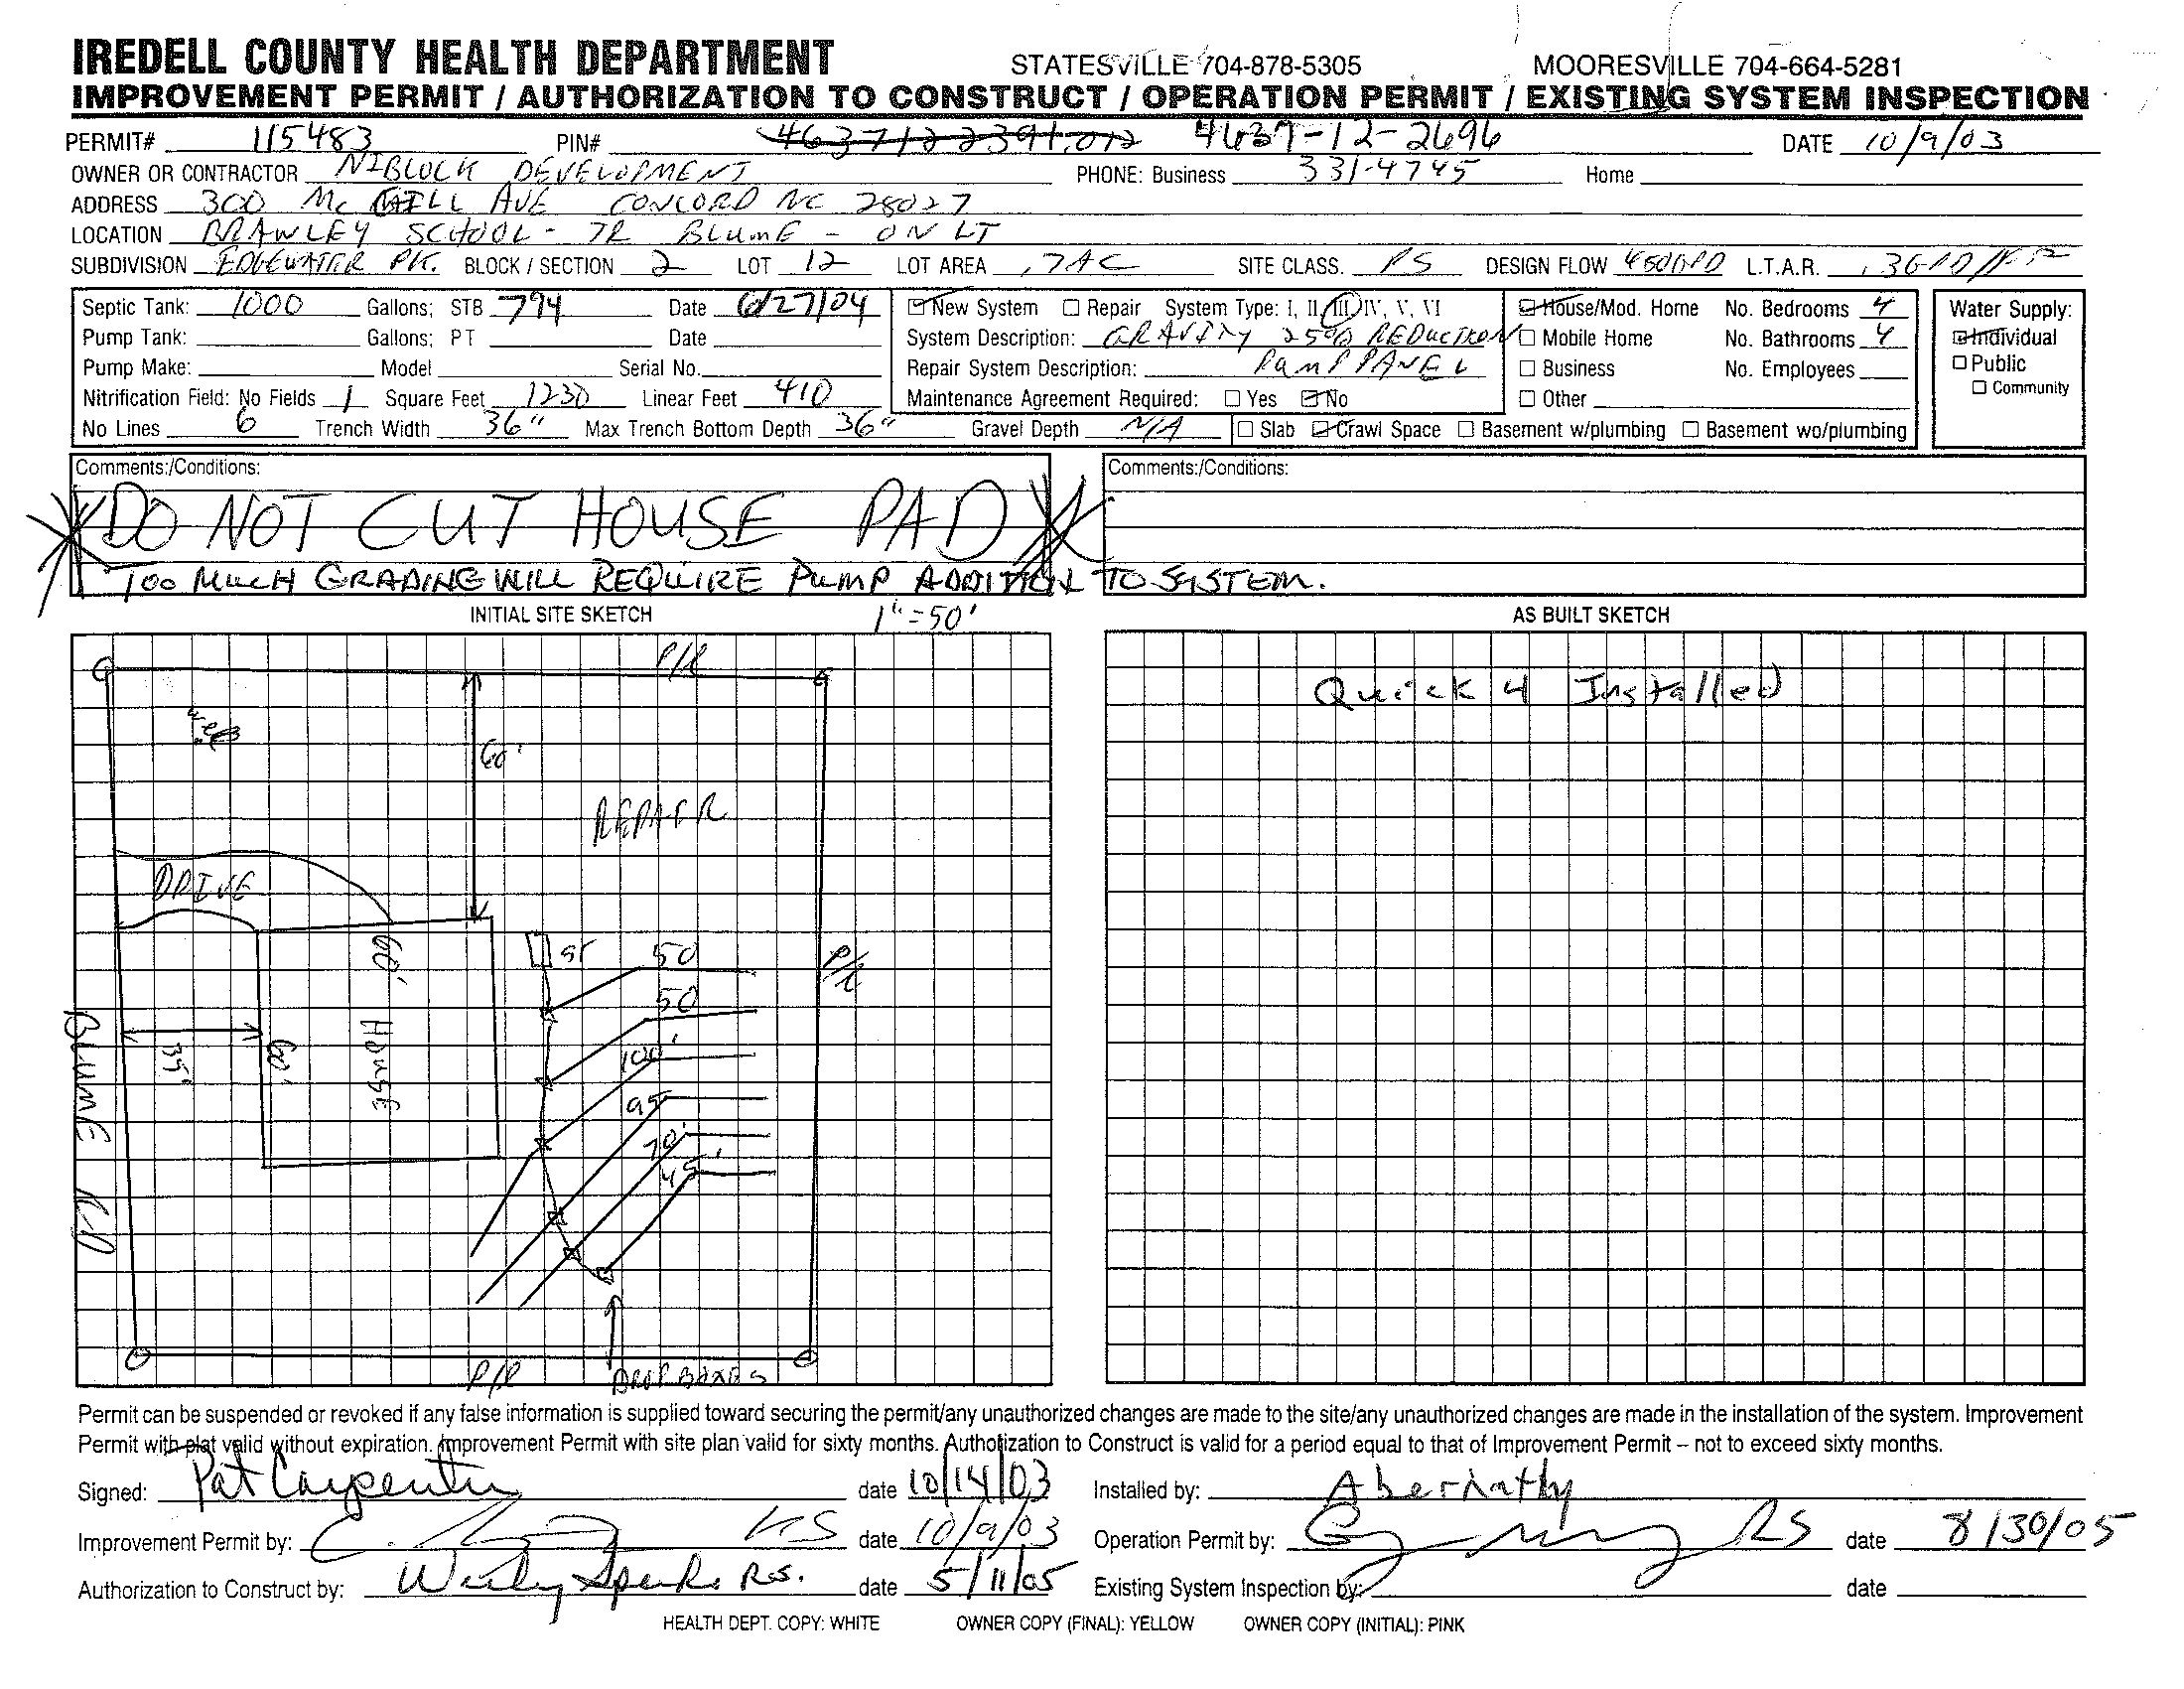 IREDELL COUNTY HEALTH DEPARTMENT STATESVILLE 704-878-5305 MOORESVILLE 704-664-5281
IMPROVEMENT PERMIT / AUTHORIZATION TO CONSTRUCT / OPERATION PERMIT / EXISTING SYSTEM INSPECTION
PERMIT# 115483 PIN# 4637-12-2696 DATE 10/9/03
OWNER OR CONTRACTOR NIBLOCK DEVELOPMENT PHONE: Business 331-4745 Home
ADDRESS 300 Mc GILL AVE CONCORD NC 28027
LOCATION BRAWLEY SCHOOL - TR BLUME - ON LT
SUBDIVISION EDGEWATER PK. BLOCK / SECTION 2 LOT 12 LOT AREA .7AC SITE CLASS. PS DESIGN FLOW 480GPD L.T.A.R. .3GPD/FT2
Septic Tank: 1000 Gallons; STB 794 Date 6/27/04 New System Repair System Type: I, II, III, IV, V, VI House/Mod. Home No. Bedrooms 4 Water Supply:
Pump Tank: Gallons; PT Date System Description: GRAVITY 25% REDUCTION Mobile Home No. Bathrooms 4 Individual
Pump Make: Model Serial No. Repair System Description: PUMP PANEL Business No. Employees Public
Nitrification Field: No Fields 1 Square Feet 1230 Linear Feet 410 Maintenance Agreement Required: Yes No Other Community
No Lines 6 Trench Width 36" Max Trench Bottom Depth 36" Gravel Depth N/A Slab Crawl Space Basement w/plumbing Basement wo/plumbing
Comments:/Conditions: Comments:/Conditions:
DO NOT CUT HOUSE PAD
TOO MUCH GRADING WILL REQUIRE PUMP ADDITION TO SYSTEM.
INITIAL SITE SKETCH 1"=50' AS BUILT SKETCH
P/L
Quick 4 Installed
60'
REPAIR
DRIVE
60'
ST
50
P/L
50
BLUME RD
35'
60'
HOUSE
100'
95
70'
45'
P/L
DROP BOXES
Permit can be suspended or revoked if any false information is supplied toward securing the permit/any unauthorized changes are made to the site/any unauthorized changes are made in the installation of the system. Improvement
Permit with plat valid without expiration. Improvement Permit with site plan valid for sixty months. Authorization to Construct is valid for a period equal to that of Improvement Permit – not to exceed sixty months.
Signed: Pat Carpenter date 10/14/03 Installed by: Abernathy
Improvement Permit by: RS date 10/9/03 Operation Permit by: RS date 8/30/05
Authorization to Construct by: R.S. date 5/11/05 Existing System Inspection by: date
HEALTH DEPT. COPY: WHITE OWNER COPY (FINAL): YELLOW OWNER COPY (INITIAL): PINK